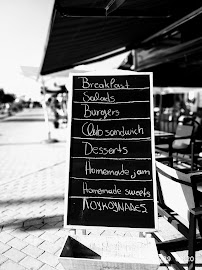 Breakfast
Salads
Burgers
Club sandwich
Desserts
Homemade jam
Homemade sweets
ΛΟΥΚΟΥΜΑΔΕΣ